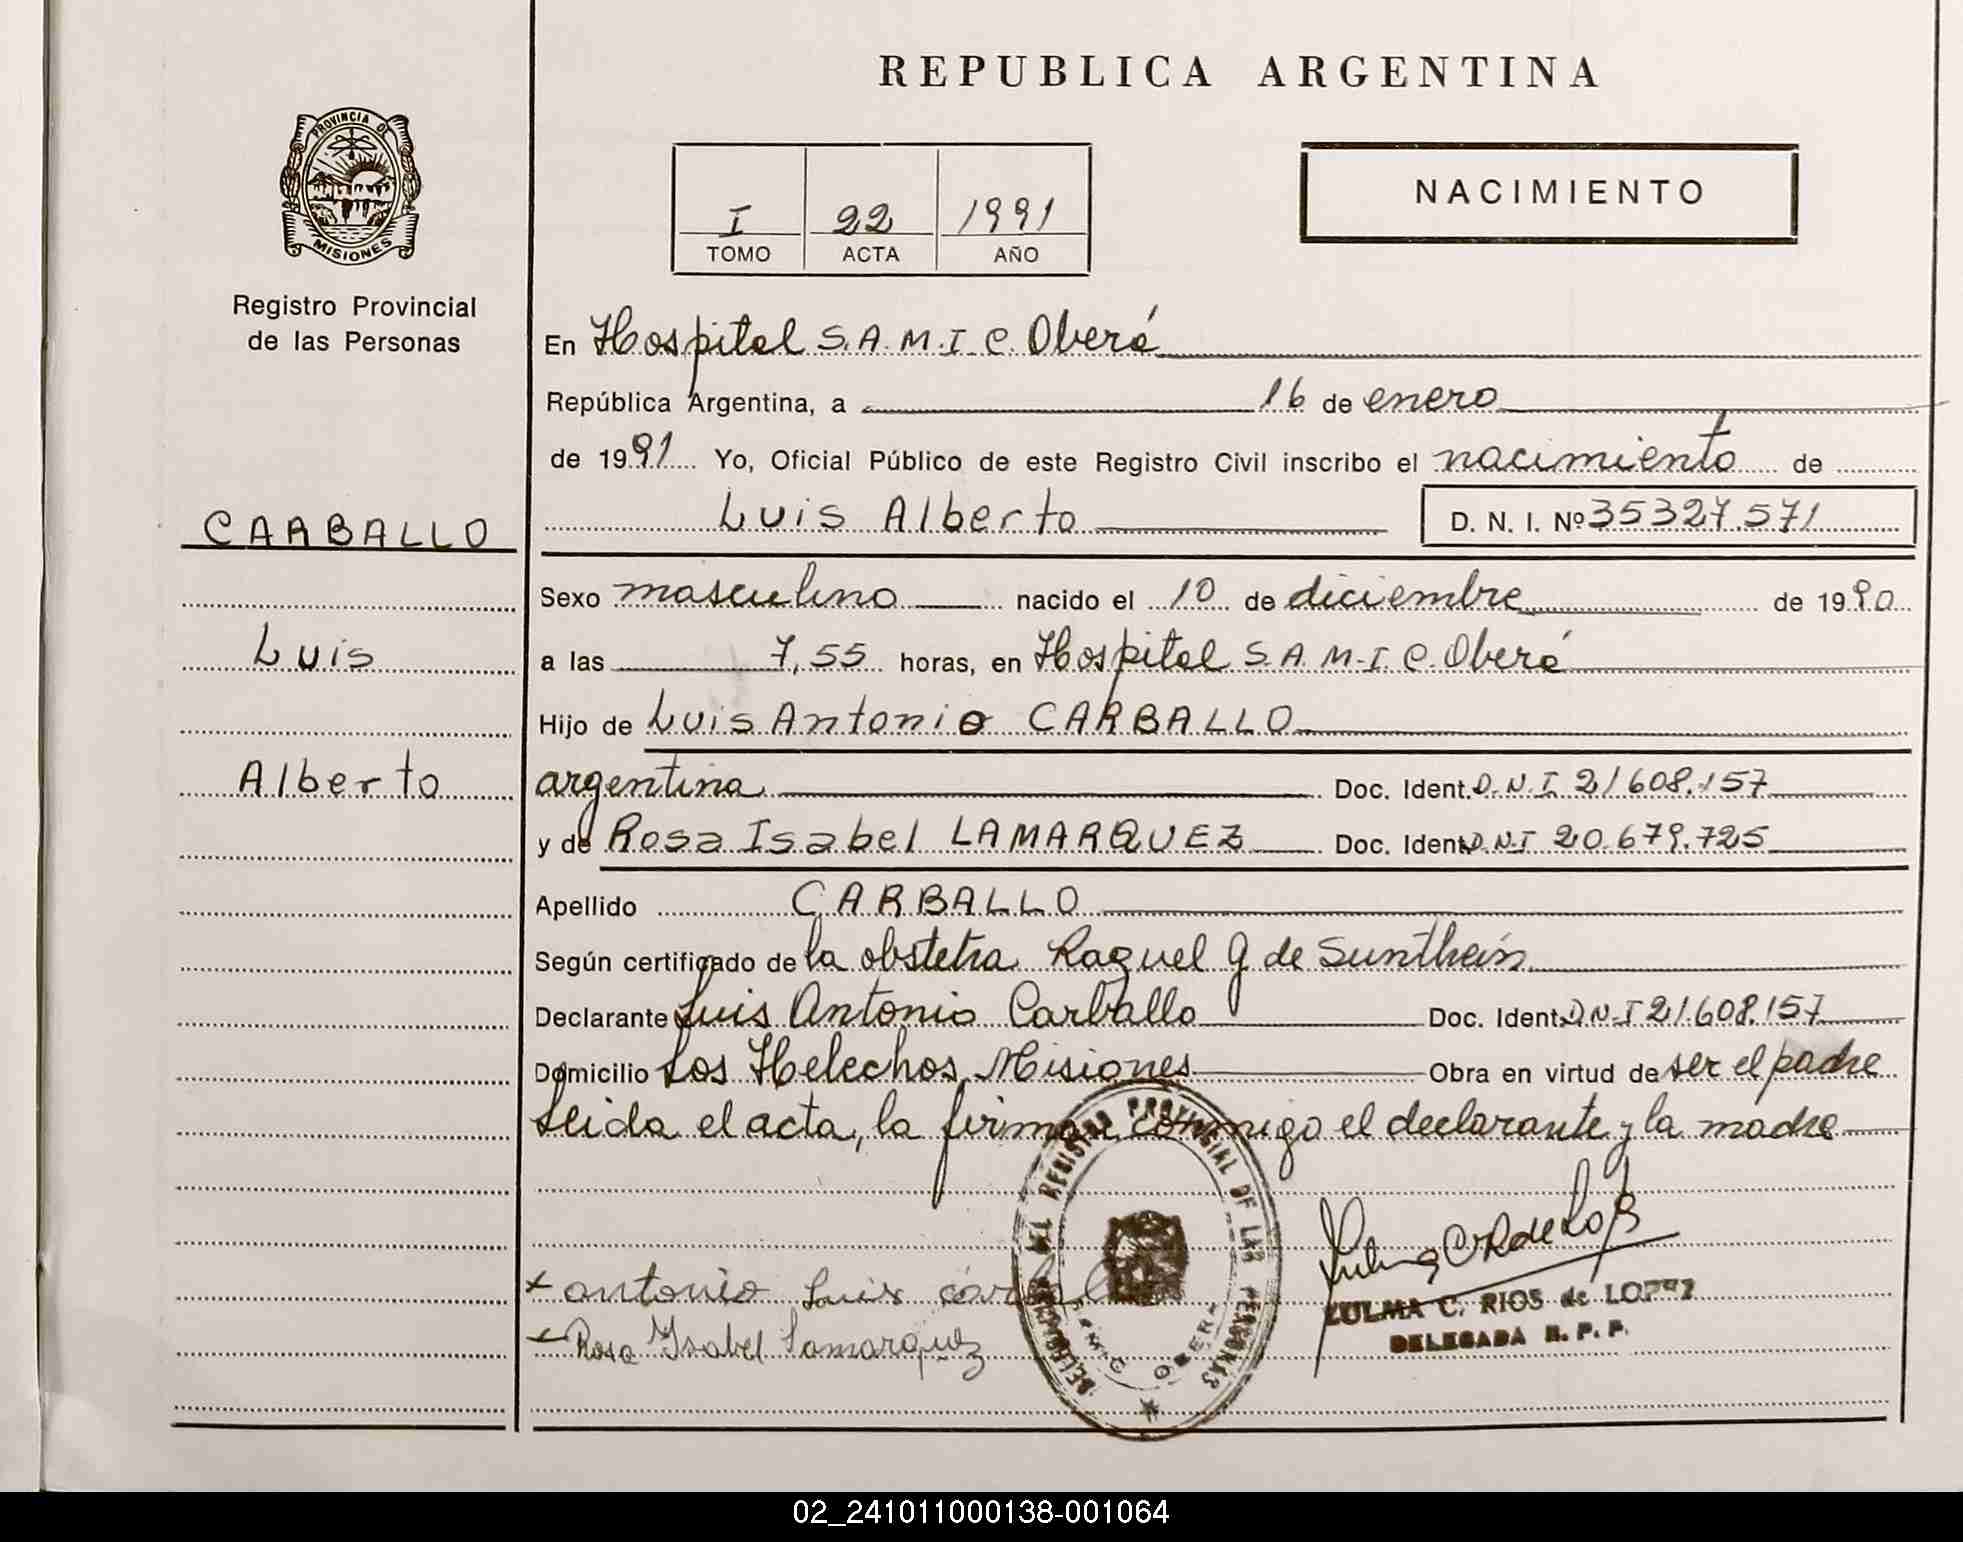 REPUBLICA ARGENTINA
PROVINCIA DE
MISIONES
Registro Provincial
de las Personas
I 22 1991
TOMO ACTA AÑO
NACIMIENTO
En Hospital S.A.M.I.C. Oberá
República Argentina, a 16 de enero
de 1991 Yo, Oficial Público de este Registro Civil inscribo el nacimiento de
CARBALLO
Luis Alberto D. N. I. Nº 35327.571
Sexo masculino nacido el 10 de diciembre de 1990
Luis
a las 7,55 horas, en Hospital S.A.M.I.C. Oberá
Hijo de Luis Antonio CARBALLO
Alberto
argentina Doc. Ident. D.N.I 21608.157
y de Rosa Isabel LAMARQUEZ Doc. Ident. D.N.I 20.679.725
Apellido CARBALLO
Según certificado de la obstetra Raquel G de
Declarante Luis Antonio Carballo Doc. Ident. D.N.I 21.608.157
Domicilio Los Helechos, Misiones Obra en virtud de ser el padre
Leida el acta, la firman conmigo el declarante y la madre
DELEGACION DEL REGISTRO PROVINCIAL DE LAS PERSONAS
SAMIC OBERA
antonio Luis
Rosa Isabel Lamarquez
ZULMA C. RIOS de LOPEZ
DELEGADA R. P. P.
02_241011000138-001064